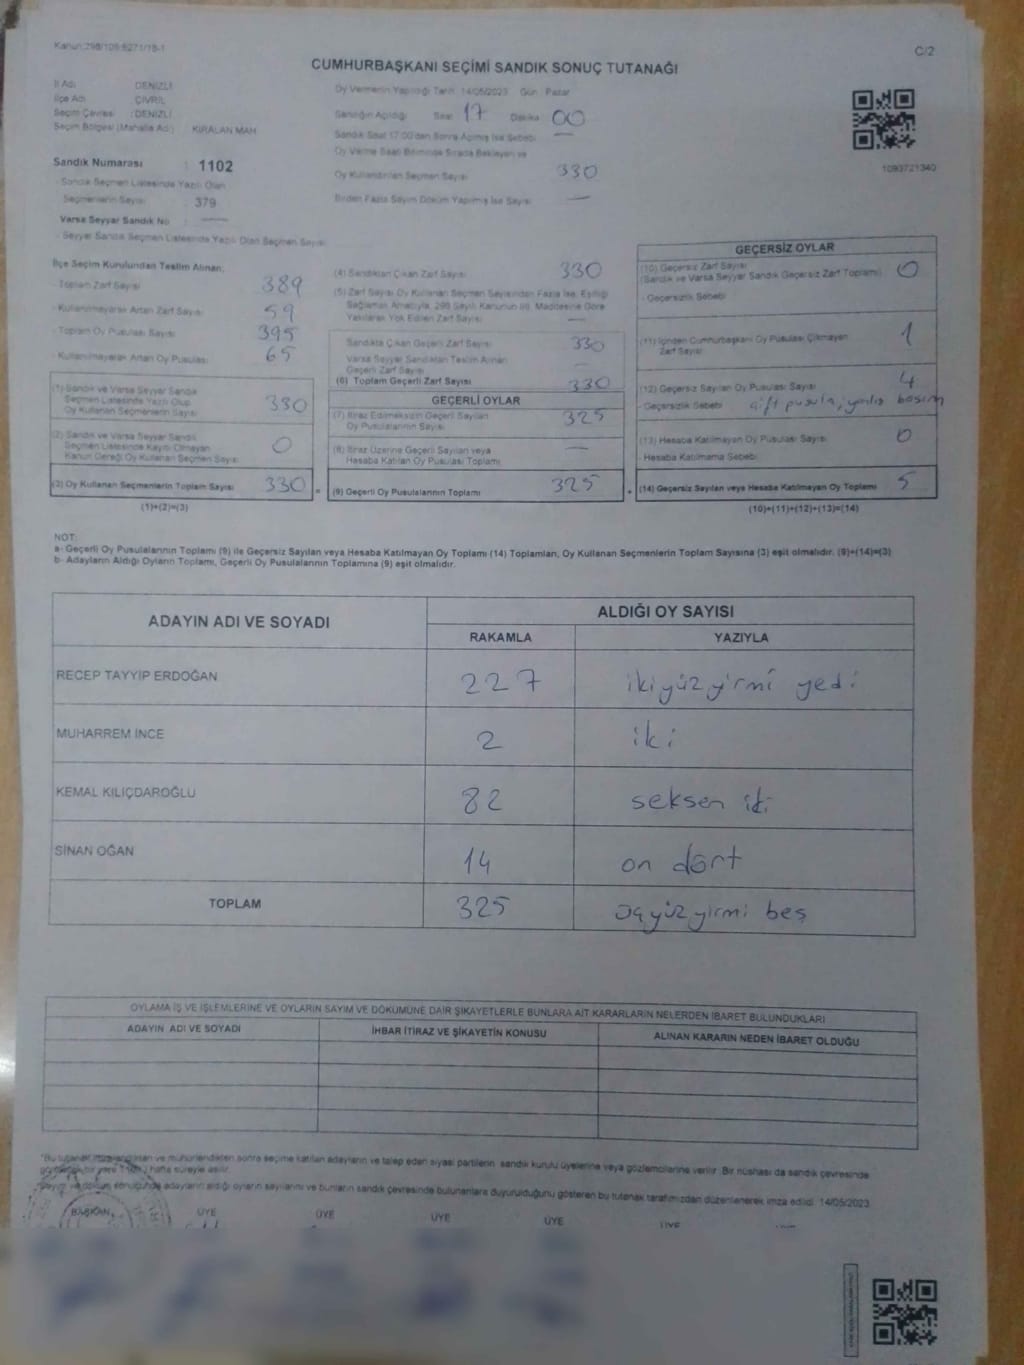 Kanun:298/105;6271/18-1
C/2
CUMHURBAŞKANI SEÇİMİ SANDIK SONUÇ TUTANAĞI
İl Adı : DENİZLİ
İlçe Adı : ÇİVRİL
Seçim Çevresi : DENİZLİ
Seçim Bölgesi (Mahalle Adı) : KIRALAN MAH.
Oy Vermenin Yapıldığı Tarih : 14/05/2023 Gün : Pazar
Sandığın Açıldığı Saat 17 Dakika 00
Sandık Saat 17:00'den Sonra Açılmış İse Sebebi —
Oy Verme Saati Bitiminde Sırada Bekleyen ve
Oy Kullandırılan Seçmen Sayısı 330
Birden Fazla Sayım Döküm Yapılmış İse Sayısı —
1093721340
Sandık Numarası : 1102
- Sandık Seçmen Listesinde Yazılı Olan
Seçmenlerin Sayısı : 379
Varsa Seyyar Sandık No : —
- Seyyar Sandık Seçmen Listesinde Yazılı Olan Seçmen Sayısı
İlçe Seçim Kurulundan Teslim Alınan;
- Toplam Zarf Sayısı 389
- Kullanılmayarak Artan Zarf Sayısı 59
- Toplam Oy Pusulası Sayısı 395
- Kullanılmayarak Artan Oy Pusulası 65
(1) Sandık ve Varsa Seyyar Sandık
Seçmen Listesinde Yazılı Olup
Oy Kullanan Seçmenlerin Sayısı 330
(2) Sandık ve Varsa Seyyar Sandık
Seçmen Listesinde Kayıtlı Olmayan
Kanun Gereği Oy Kullanan Seçmen Sayısı 0
(3) Oy Kullanan Seçmenlerin Toplam Sayısı 330
(1)+(2)=(3)
(4) Sandıktan Çıkan Zarf Sayısı 330
(5) Zarf Sayısı Oy Kullanan Seçmen Sayısından Fazla İse, Eşitliği
Sağlamak Amacıyla, 298 Sayılı Kanunun 98. Maddesine Göre
Yakılarak Yok Edilen Zarf Sayısı —
Sandıkta Çıkan Geçerli Zarf Sayısı 330
Varsa Seyyar Sandıktan Teslim Alınan
Geçerli Zarf Sayısı —
(6) Toplam Geçerli Zarf Sayısı 330
GEÇERLİ OYLAR
(7) İtiraz Edilmeksizin Geçerli Sayılan
Oy Pusulalarının Sayısı 325
(8) İtiraz Üzerine Geçerli Sayılan veya
Hesaba Katılan Oy Pusulası Toplamı —
= (9) Geçerli Oy Pusulalarının Toplamı 325
GEÇERSİZ OYLAR
(10) Geçersiz Zarf Sayısı
(Sandık ve Varsa Seyyar Sandık Geçersiz Zarf Toplamı) 0
- Geçersizlik Sebebi
(11) İçinden Cumhurbaşkanı Oy Pusulası Çıkmayan
Zarf Sayısı 1
(12) Geçersiz Sayılan Oy Pusulası Sayısı 4
- Geçersizlik Sebebi çift pusula, yanlış basım
(13) Hesaba Katılmayan Oy Pusulası Sayısı 0
- Hesaba Katılmama Sebebi
+ (14) Geçersiz Sayılan veya Hesaba Katılmayan Oy Toplamı 5
(10)+(11)+(12)+(13)=(14)
NOT:
a- Geçerli Oy Pusulalarının Toplamı (9) ile Geçersiz Sayılan veya Hesaba Katılmayan Oy Toplamı (14) Toplamları, Oy Kullanan Seçmenlerin Toplam Sayısına (3) eşit olmalıdır. (9)+(14)=(3)
b- Adayların Aldığı Oyların Toplamı, Geçerli Oy Pusulalarının Toplamına (9) eşit olmalıdır.
ADAYIN ADI VE SOYADI
ALDIĞI OY SAYISI
RAKAMLA YAZIYLA
RECEP TAYYİP ERDOĞAN 227 ikiyüzyirmi yedi
MUHARREM İNCE 2 iki
KEMAL KILIÇDAROĞLU 82 seksen iki
SİNAN OĞAN 14 on dört
TOPLAM 325 üçyüzyirmi beş
OYLAMA İŞ VE İŞLEMLERİNE VE OYLARIN SAYIM VE DÖKÜMÜNE DAİR ŞİKAYETLERLE BUNLARA AİT KARARLARIN NELERDEN İBARET BULUNDUKLARI
ADAYIN ADI VE SOYADI İHBAR İTİRAZ VE ŞİKAYETİN KONUSU ALINAN KARARIN NEDEN İBARET OLDUĞU
*Bu tutanak imzalandıktan ve mühürlendikten sonra seçime katılan adayların ve talep eden siyasi partilerin sandık kurulu üyelerine veya gözlemcilerine verilir. Bir nüshası da sandık çevresinde
hafta süreyle asılır.
Sayım ve döküm sonuçunda adayların aldığı oyların sayılarını ve bunların sandık çevresinde bulunanlara duyurulduğunu gösteren bu tutanak tarafımızdan düzenlenerek imza edildi. 14/05/2023
BAŞKAN ÜYE ÜYE ÜYE ÜYE ÜYE